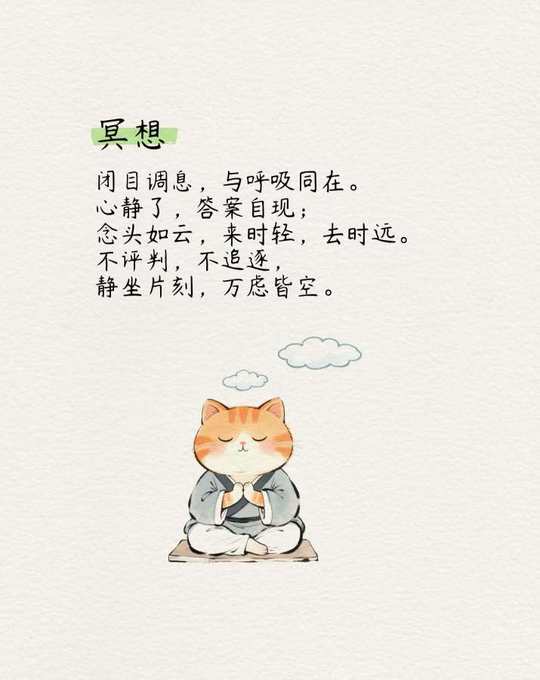 冥想
闭目调息，与呼吸同在。
心静了，答案自现；
念头如云，来时轻，去时远。
不评判，不追逐，
静坐片刻，万虑皆空。